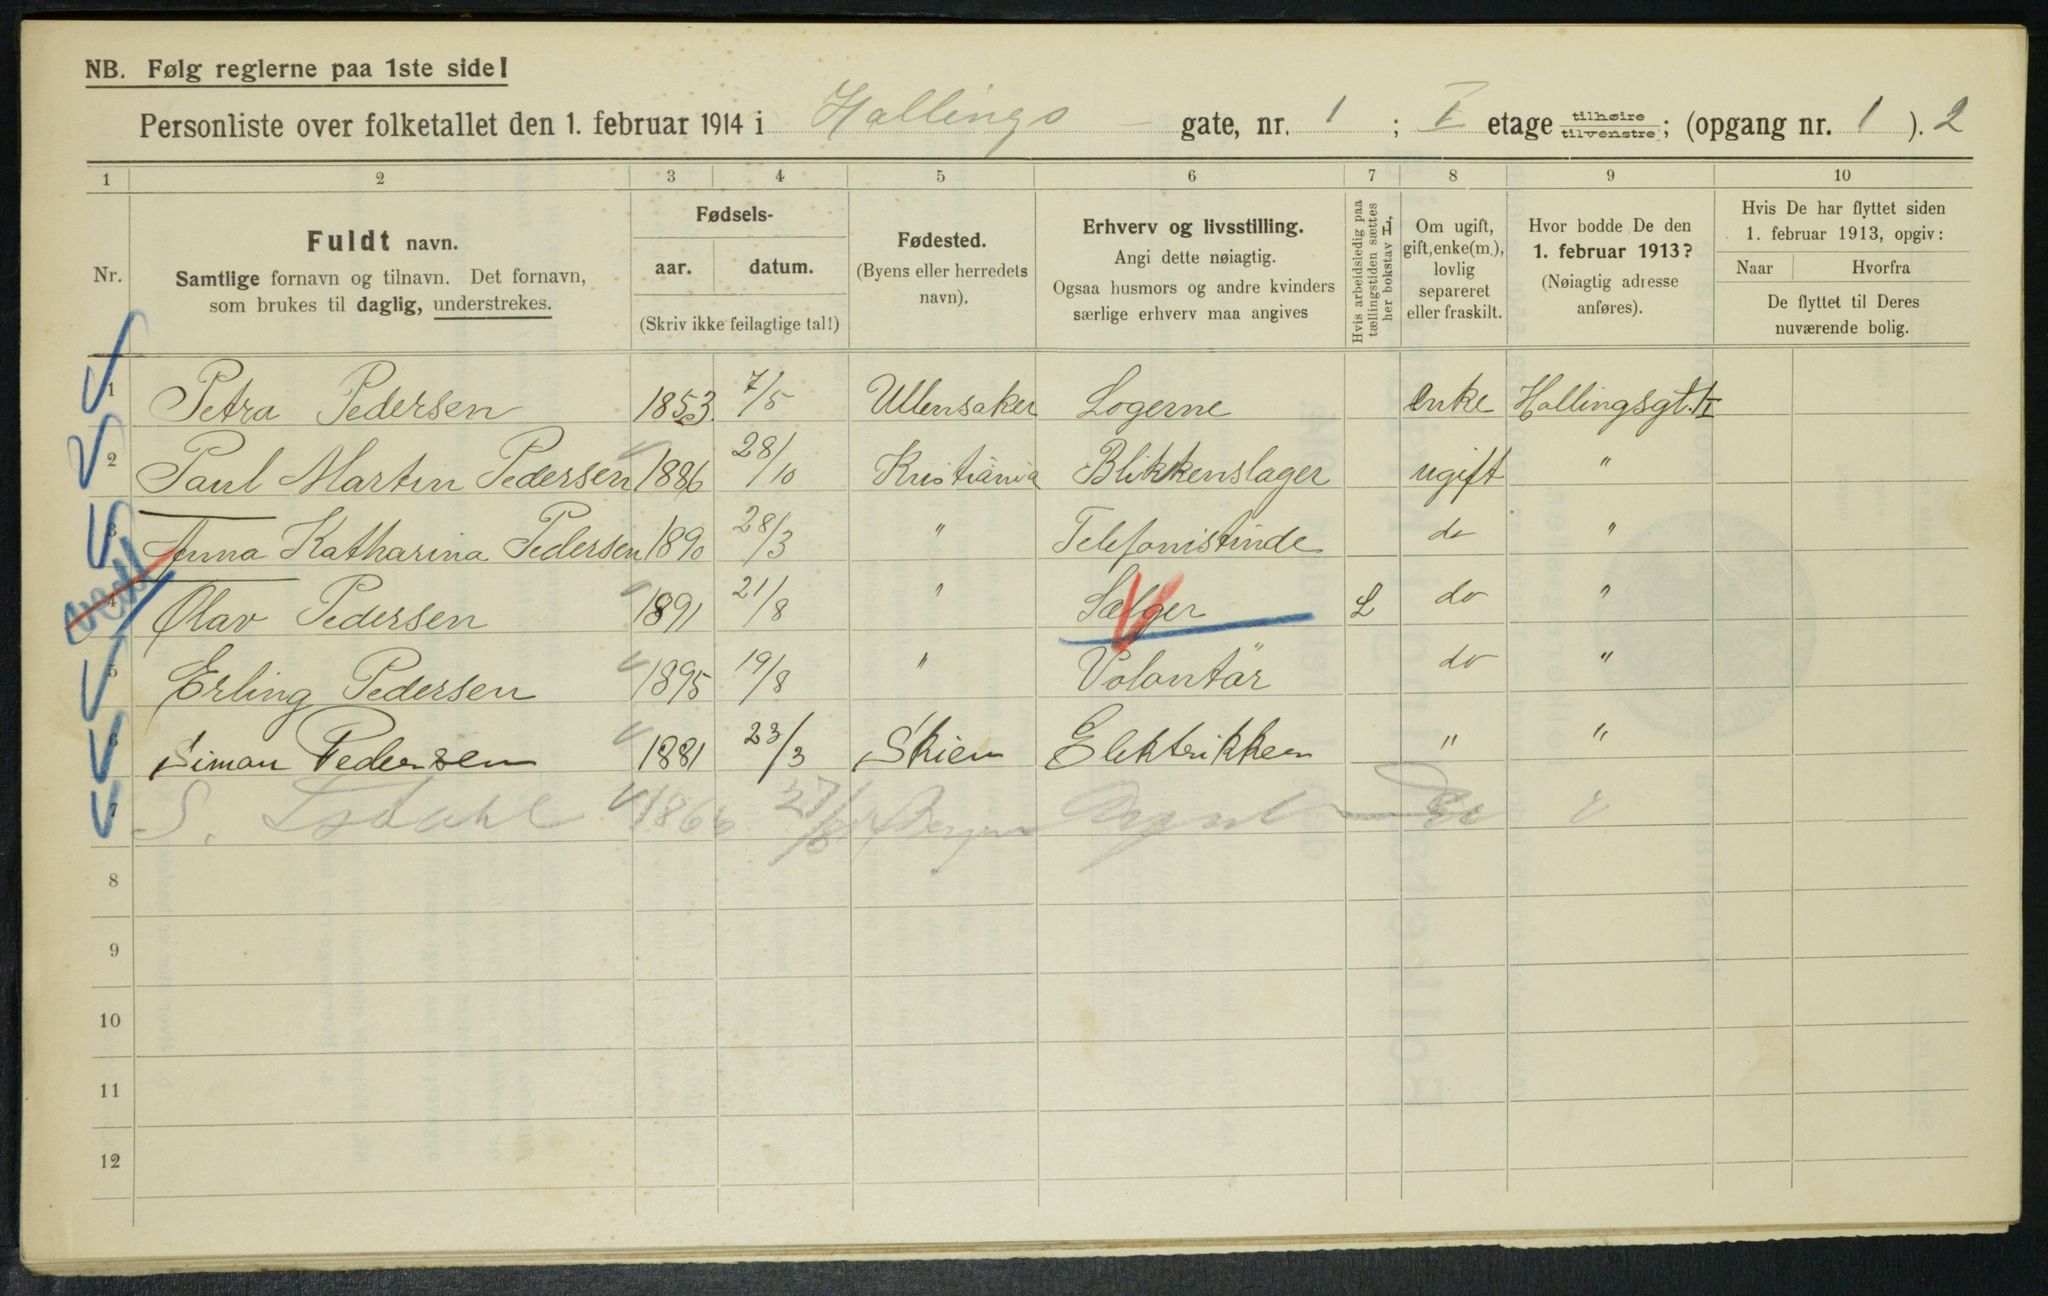 NB. Følg reglerne paa 1ste side!
Personliste over folketallet den 1. februar 1914 i Hallings gate, nr. 1 ; I etage tilhøire/tilvenstre; (opgang nr. 1 ). 2
1 2 3 4 5 6 7 8 9 10
Nr.
Fuldt navn.
Samtlige fornavn og tilnavn. Det fornavn,
som brukes til daglig, understrekes.
Fødsels-
aar. datum.
(Skriv ikke feilagtige tal!)
Fødested.
(Byens eller herredets
navn).
Erhverv og livsstilling.
Angi dette nøiagtig.
Ogsaa husmors og andre kvinders
særlige erhverv maa angives
Hvis arbeidsledig paa
tællingstiden sættes
her bokstav L.
Om ugift,
gift, enke(m.),
lovlig
separeret
eller fraskilt.
Hvor bodde De den
1. februar 1913?
(Nøiagtig adresse
anføres).
Hvis De har flyttet siden
1. februar 1913, opgiv:
Naar Hvorfra
De flyttet til Deres
nuværende bolig.
1 Petra Pedersen 1853 7/5 Ullensaker Logerne enke Hallingsgt. 1I
2 Paul Martin Pedersen 1886 28/10 Kristiania Blikkenslager ugift "
3 Anna Katharina Pedersen 1890 28/3 " Telefonistinde do "
4 Olav Pedersen 1891 21/8 " Sælger L do "
5 Erling Pedersen 1895 19/8 " Volontär do "
6 Simon Pedersen 1881 23/3 Skien Elektrikker " "
7 S. Isdahl 1866 Bergen Agent
8
9
10
11
12